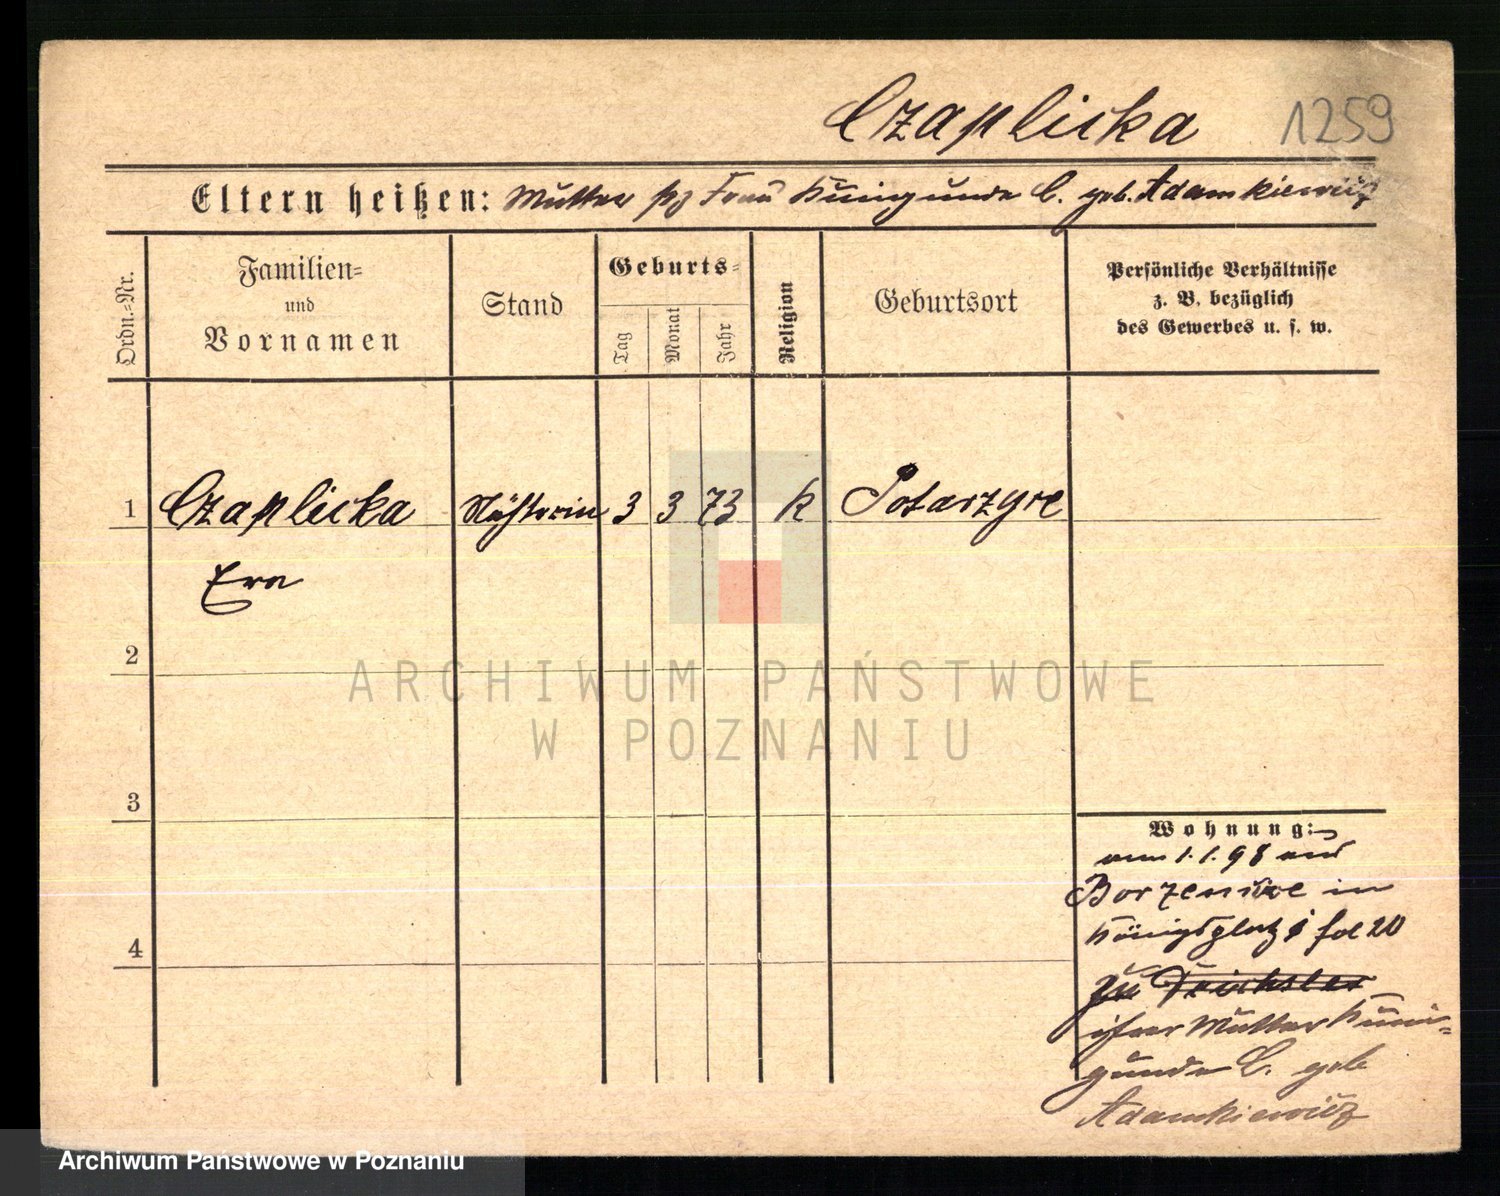 Czaplicka 1259
Eltern heißen: Mutter Frau Kunigunde C. geb. Adamkiewicz
Ordn.=Nr.
Familien=
und
Vornamen
Stand
Geburts=
Tag
Monat
Jahr
Religion
Geburtsort
Persönliche Verhältnisse
z. B. bezüglich
des Gewerbes u. s. w.
1 Czaplicka Näherin 3 3 73 k
Eva
2
ARCHIWUM PAŃSTWOWE
W POZNANIU
3
Wohnung:
1.1.98
in
Königsplatz fol 20
zu
ihrer Mutter Kuni-
gunde C. geb
Adamkiewicz
4
Archiwum Państwowe w Poznaniu